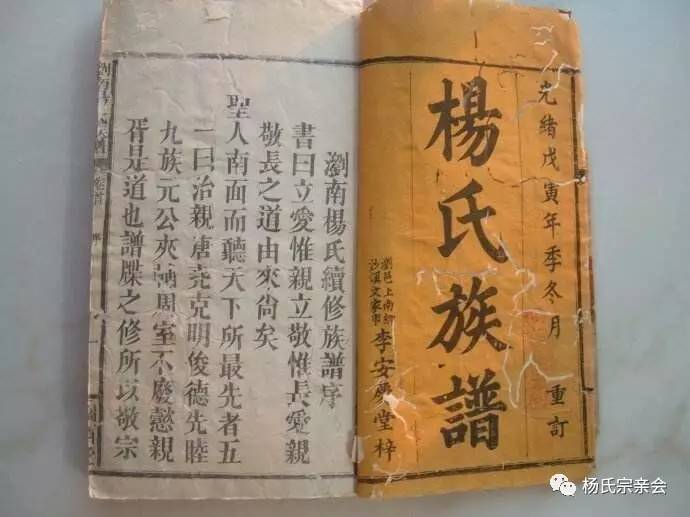 光緒戊寅年季冬月 重訂
楊氏族譜
瀏邑上南鄉
沙溪文家市
李安慶堂梓
瀏南楊氏續修族譜序
書曰立愛惟親立敬惟長愛親
敬長之道由來尚矣
聖人南面而聽天下所最先者五
一曰治親唐堯克明俊德先睦
九族元公夾輔周室不廢懿親
胥是道也譜牒之修所以敬宗
杨氏宗亲会